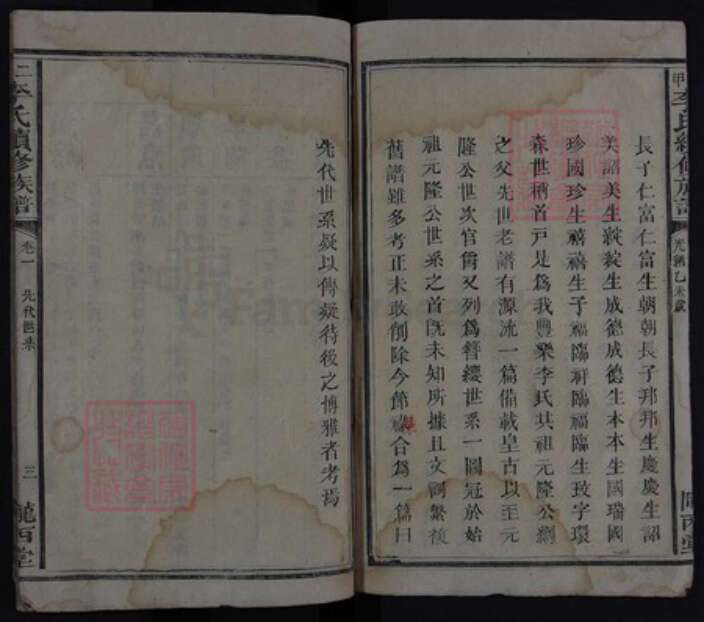 甲
李氏續修族譜
光緒乙未歲
隴西堂
長子仁富仁富生朝朝長子邦邦生慶慶生詔
美詔美生綻綻生成德成德生本本生國瑞國
珍國珍生禧禧生子福臨祥臨福臨生玟字環
森世稱首戶是為我豐樂李氏共祖元隆公嗣
之父先世老譜有源流一篇備載皇古以至元
隆公世次官爵又列為簪纓世系一圖冠於始
祖元隆公世系之首既未知所據且文詞繁複
舊譜雖多考正未敢刪除今節合為一篇曰
先代世系疑以傳疑待後之博雅者考焉
二
李氏續修族譜
卷一
先代世系
三
隴西堂